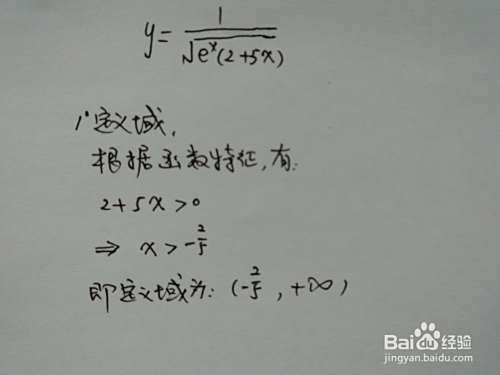 y = 1/√(e^x(2+5x))
1°定义域,
根据函数特征,有:
2+5x>0
⇒ x>-2/5
即定义域为:(-2/5,+∞)
Baidu经验
jingyan.baidu.com